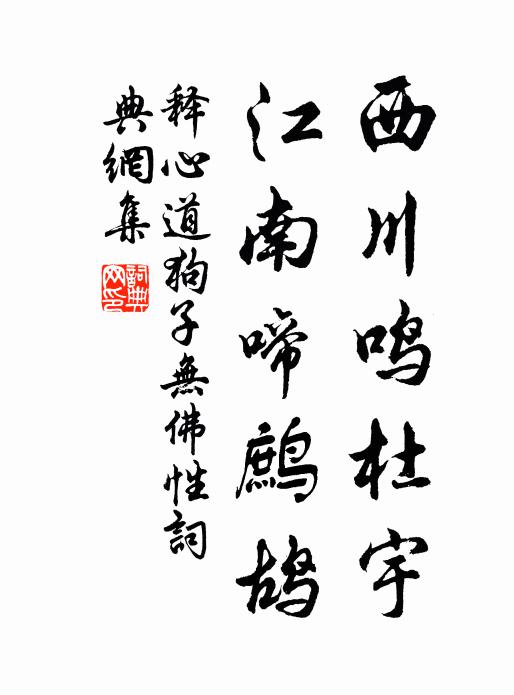 西川鸣杜宇
江南啼鹧鸪
释心道狗子無佛性詞
典網集
詞典网印